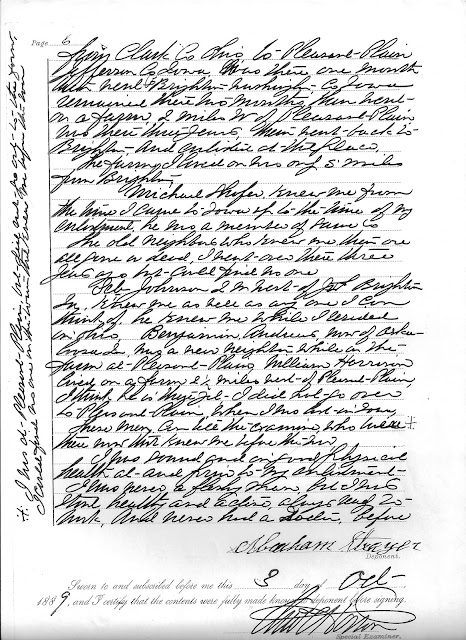 Page 6
from Clark Co Ohio, to Pleasant-Plain
Jefferson Co Iowa. Was there one month
then went Brighton Washington Co Iowa
remained there two months, then went-
on a farm, 2 miles W of Pleasant Plain,
was there three years, then went-back to
Brighton- and enlisted at that place,
the farm I lived on was only 5 miles
from Brighton
Michael Hofer, knew me from
the time I came to Iowa up to the time of my
enlistment, he was a member of same Co
The old neighbors who knew me then are
all gone or dead, I went-over there three
years ago but-could find no one
Johnson 2 m west-of Brighton
Ia, knew me as well as any one I can
think of, he knew me while I resided
in Ohio. Benjamin Andrews, now of Oska-
loosa Ia, was a near neighbor while on the
farm at-Pleasant-Plain, William Harrison
lived on a farm 2½ miles west-of Pleasant-Plain,
I think he is there yet-I did not-go over
to Pleasant Plain, when I was last-in Iowa,
these men, are all the examine, who
there now that knew me before the war
I was sound and in good physical
health at-and prior to-my enlistment-
I was never a fleshy man, but I was
stout, healthy and active, always able to-
work, and never had a Doctor, before
Abraham Strayer
Deponent.
Sworn to and subscribed before me this 3 day of Oct-
1889, and I certify that the contents were fully made known to deponent before signing.
Special Examiner.
#. I was at-Pleasant-Plain,
could find no one in the town that knew me before the war